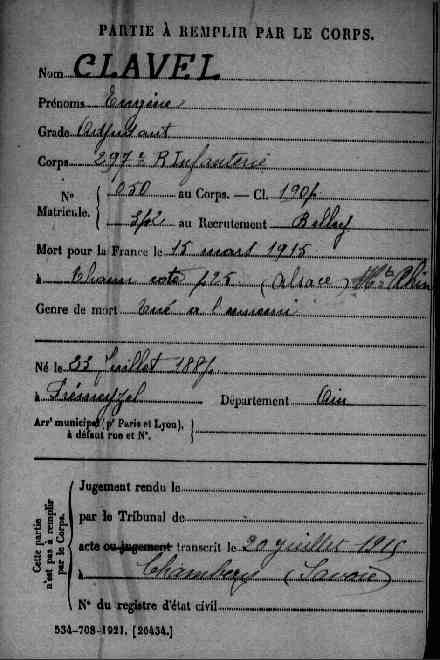 PARTIE À REMPLIR PAR LE CORPS.
Nom CLAVEL
Prénoms Eugène
Grade Adjudant
Corps 297e R Infanterie
N° Matricule. 050 au Corps. — Cl. 1907
au Recrutement Belley
Mort pour la France le 15 mars 1915
à Thann cote 725 (Alsace) Ht Rhin
Genre de mort Tué a l'ennemi
Né le 23 Juillet 1887
à Département Ain
Arrt municipal (pr Paris et Lyon), à défaut rue et N°.
Cette partie n'est pas à remplir par le Corps.
Jugement rendu le
par le Tribunal de
acte ou jugement transcrit le 20 juillet 1915
à Chambéry (Savoie)
N° du registre d'état civil
534-708-1921. [26434.]